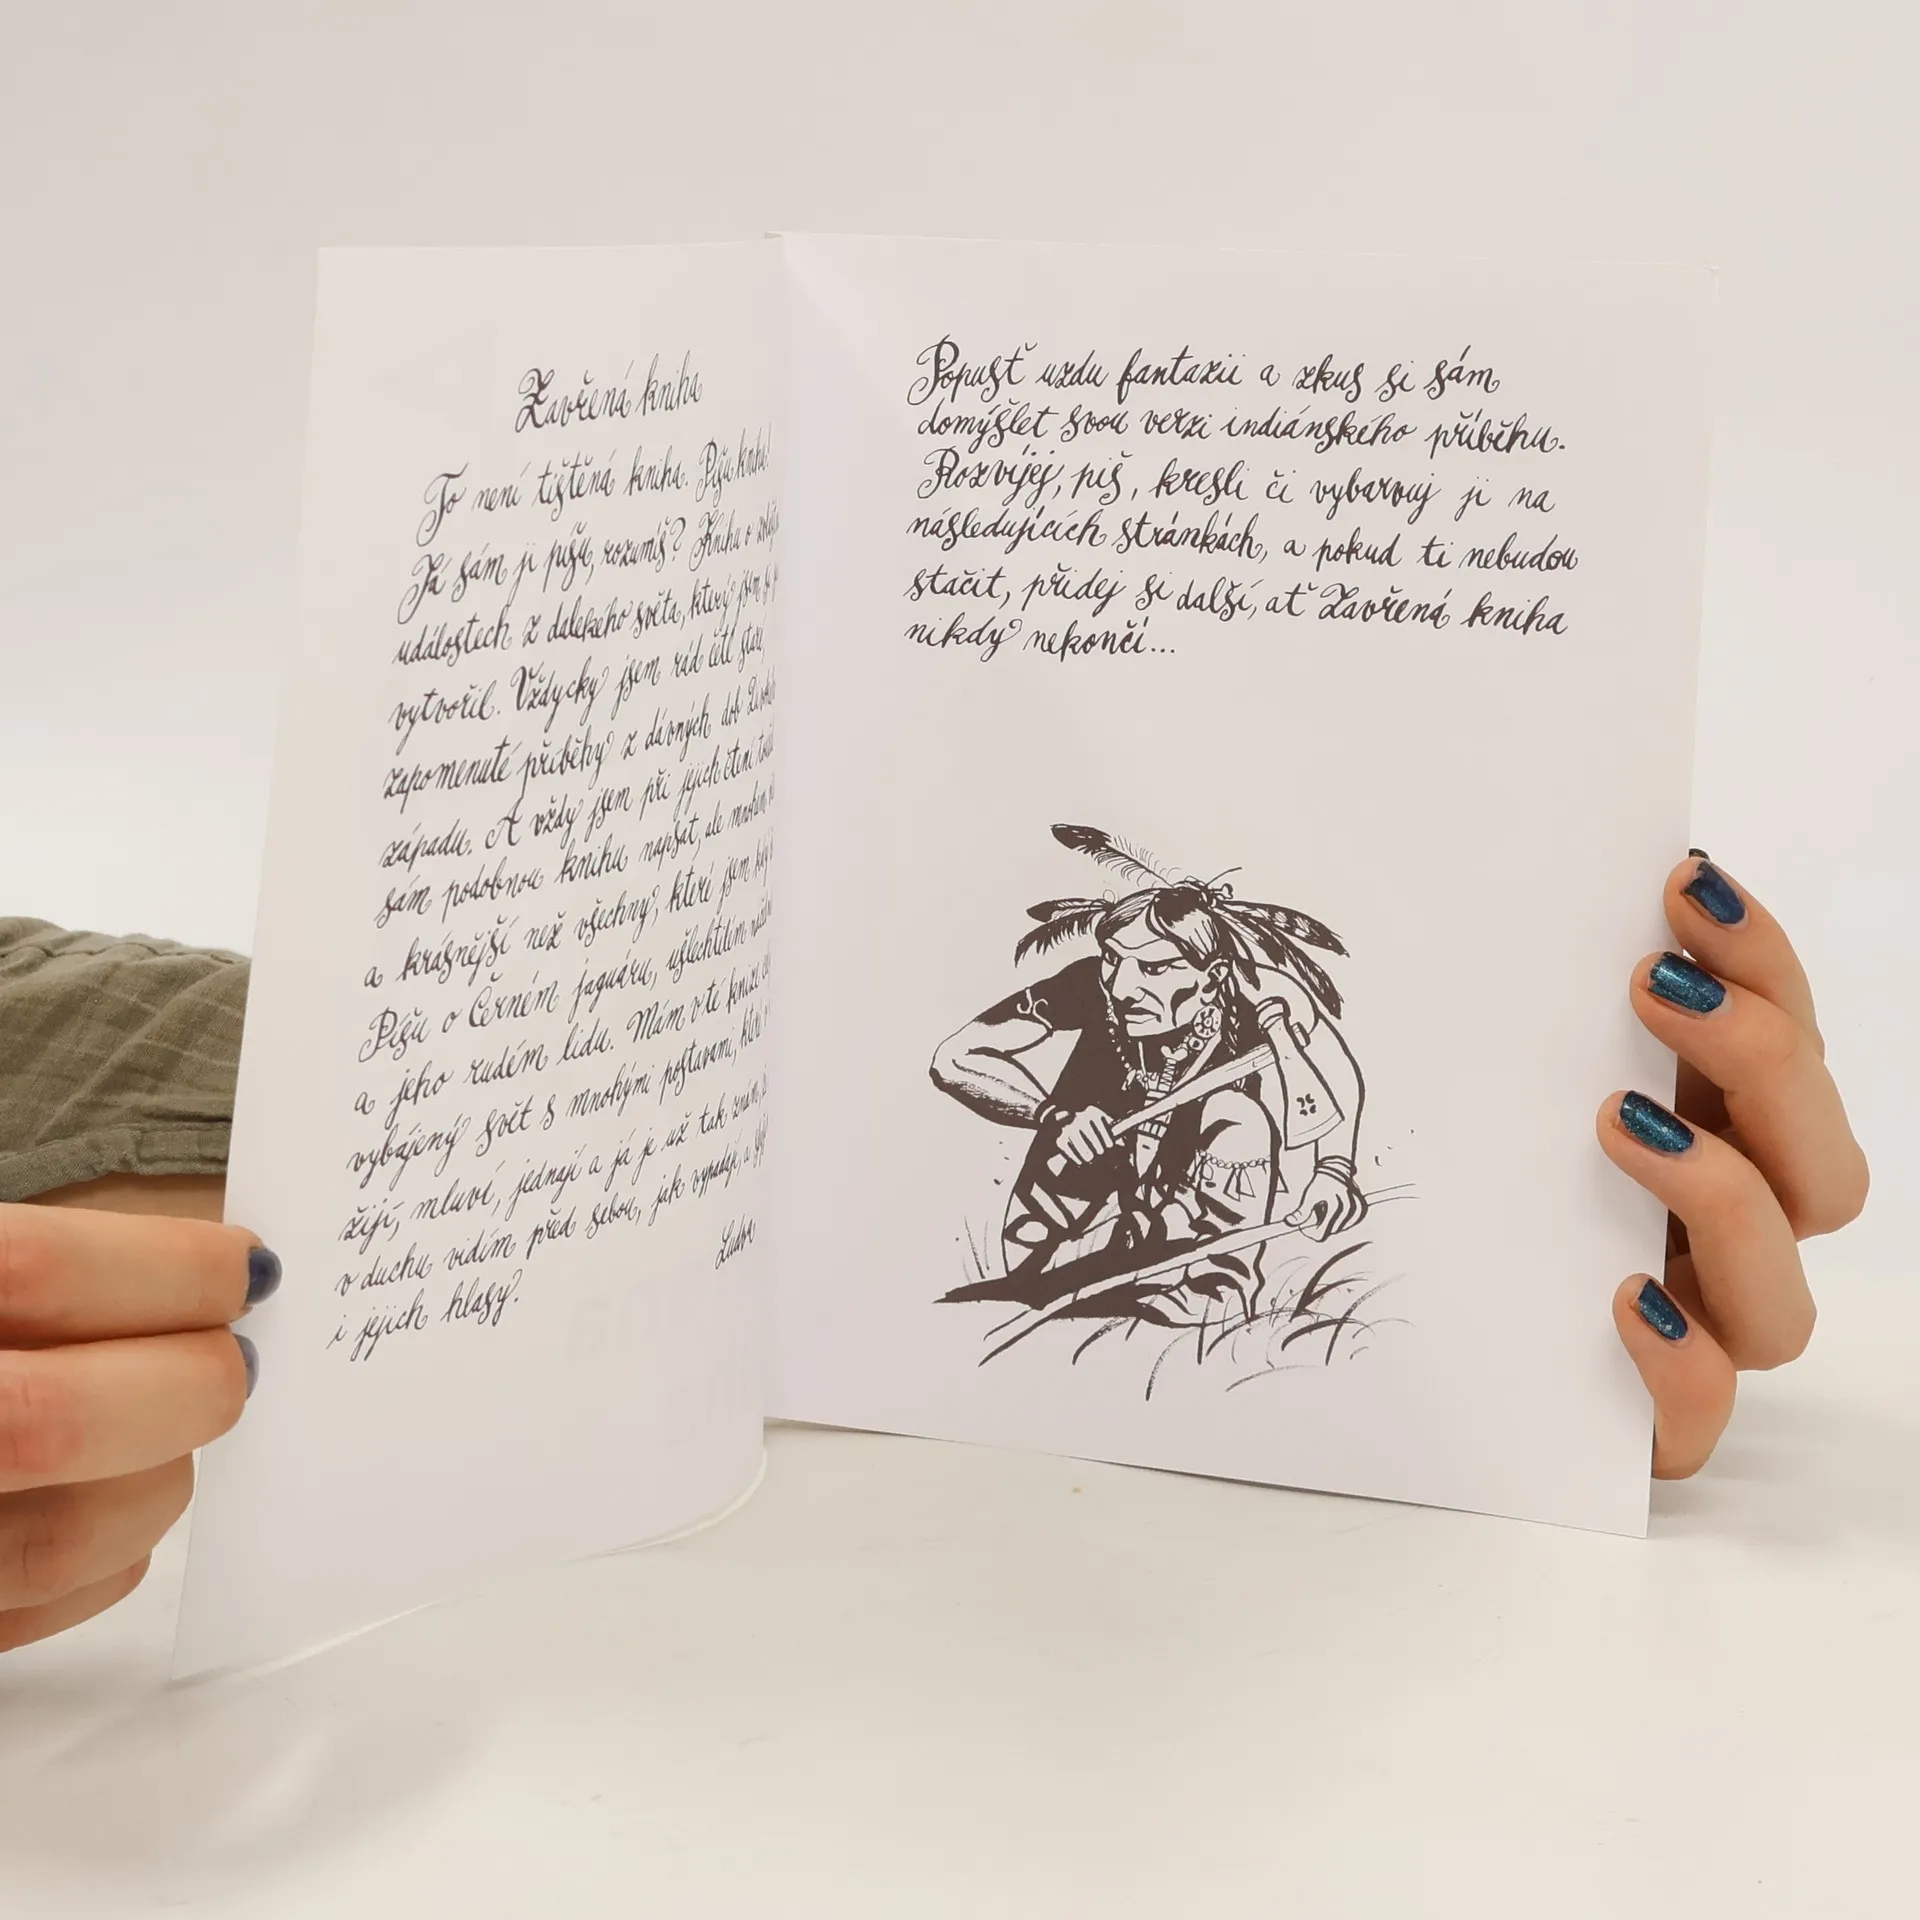 Zavřená kniha
To není tištěná kniha. Píšu knihu!
Já sám ji píšu, rozumíš? Knihu o
událostech z dalekého světa, který jsem si
vytvořil. Vždycky jsem rád četl staré,
zapomenuté příběhy z dávných dob
západu. A vždy jsem při jejich čtení
sám podobnou knihu napsat, ale mnohem
a krásnější než všechny, které jsem kdy
Píšu o Černém jaguáru, ušlechtilém
a jeho rudém lidu. Mám v té knize
vybájený svět s mnohými postavami,
žijí, mluví, jednají a já je už tak znám,
v duchu vidím před sebou, jak vypadají, a
i jejich hlasy.
Ludva
Popusť uzdu fantazii a zkus si sám
domýšlet svou verzi indiánského příběhu.
Rozvíjej, piš, kresli či vybarvuj ji na
následujících stránkách, a pokud ti nebudou
stačit, přidej si další, ať Zavřená kniha
nikdy nekončí...